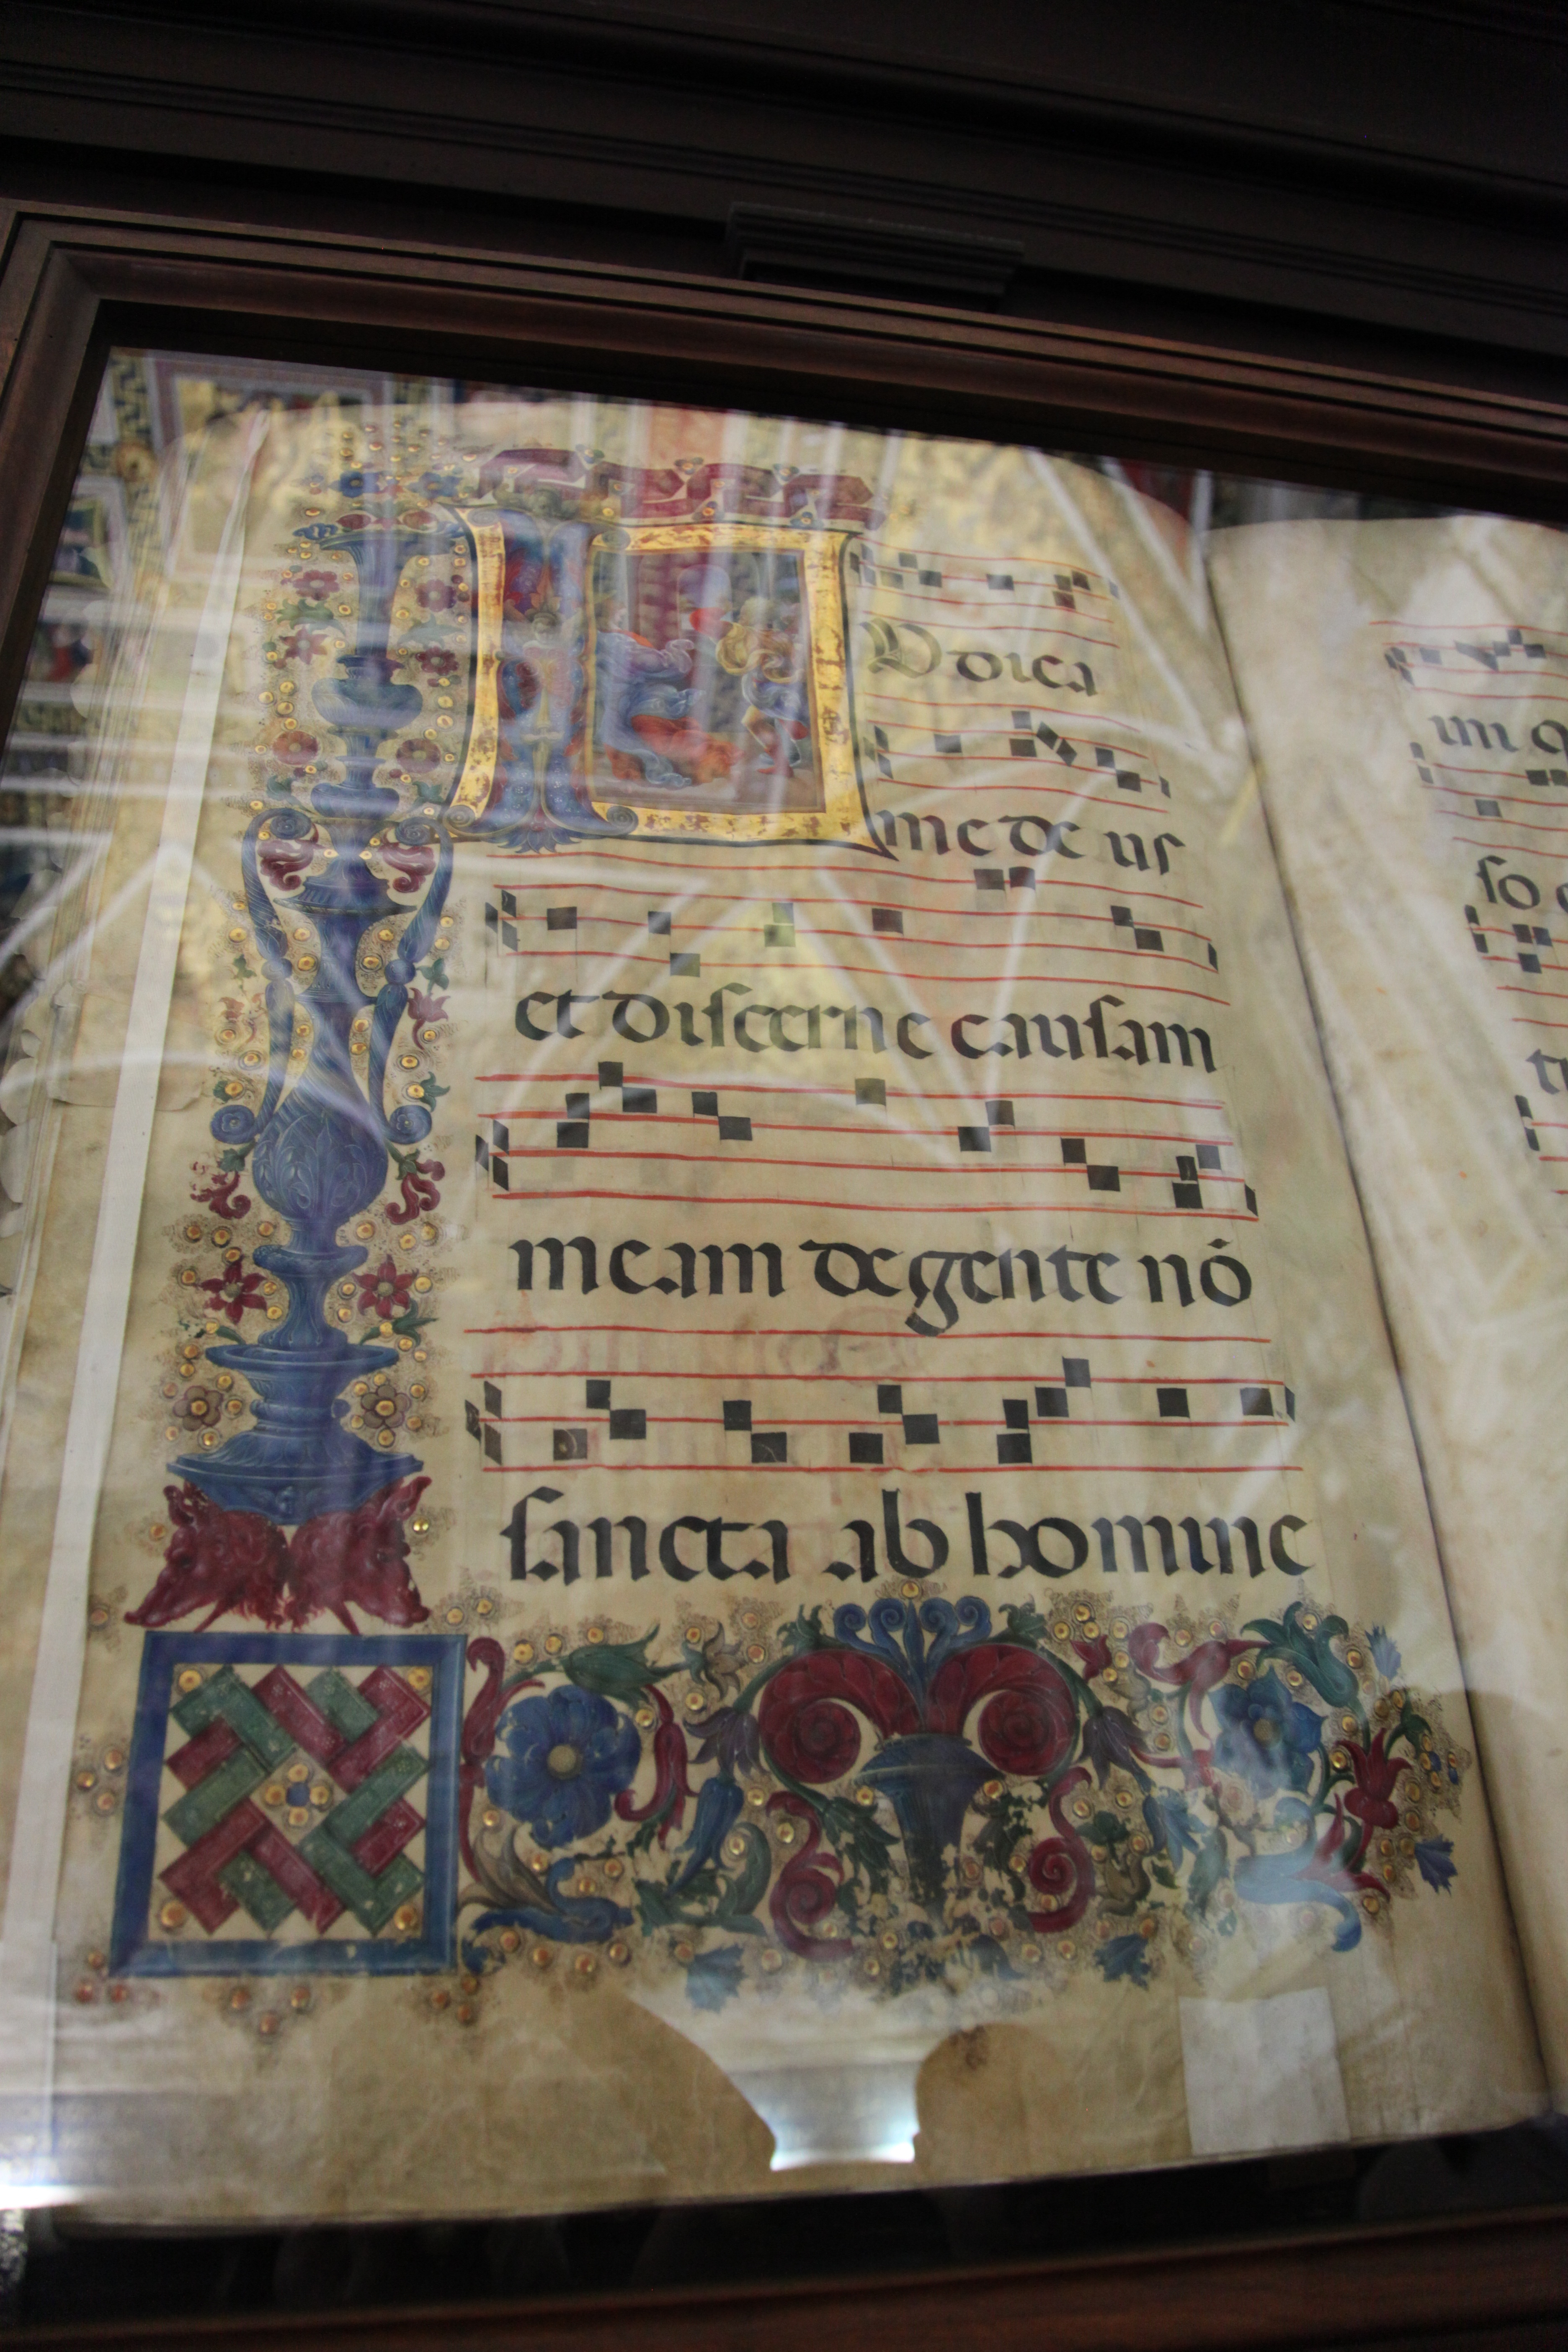 IUdica
me deus
et discerne causam
meam de gente nō
sancta ab homine
so